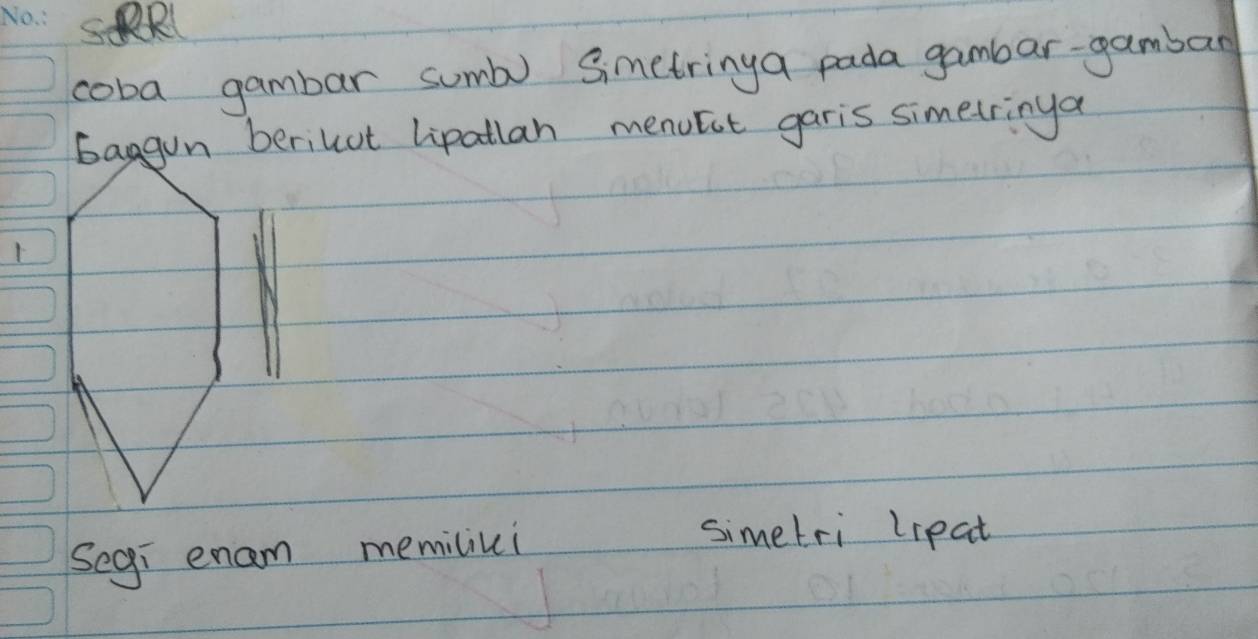 No.:
coba gambar sumbu Simetrinya pada gambar-gambar
bangun berikut lipatlah menurut garis simetrinya
1
Segi enam memiliki simetri lipat